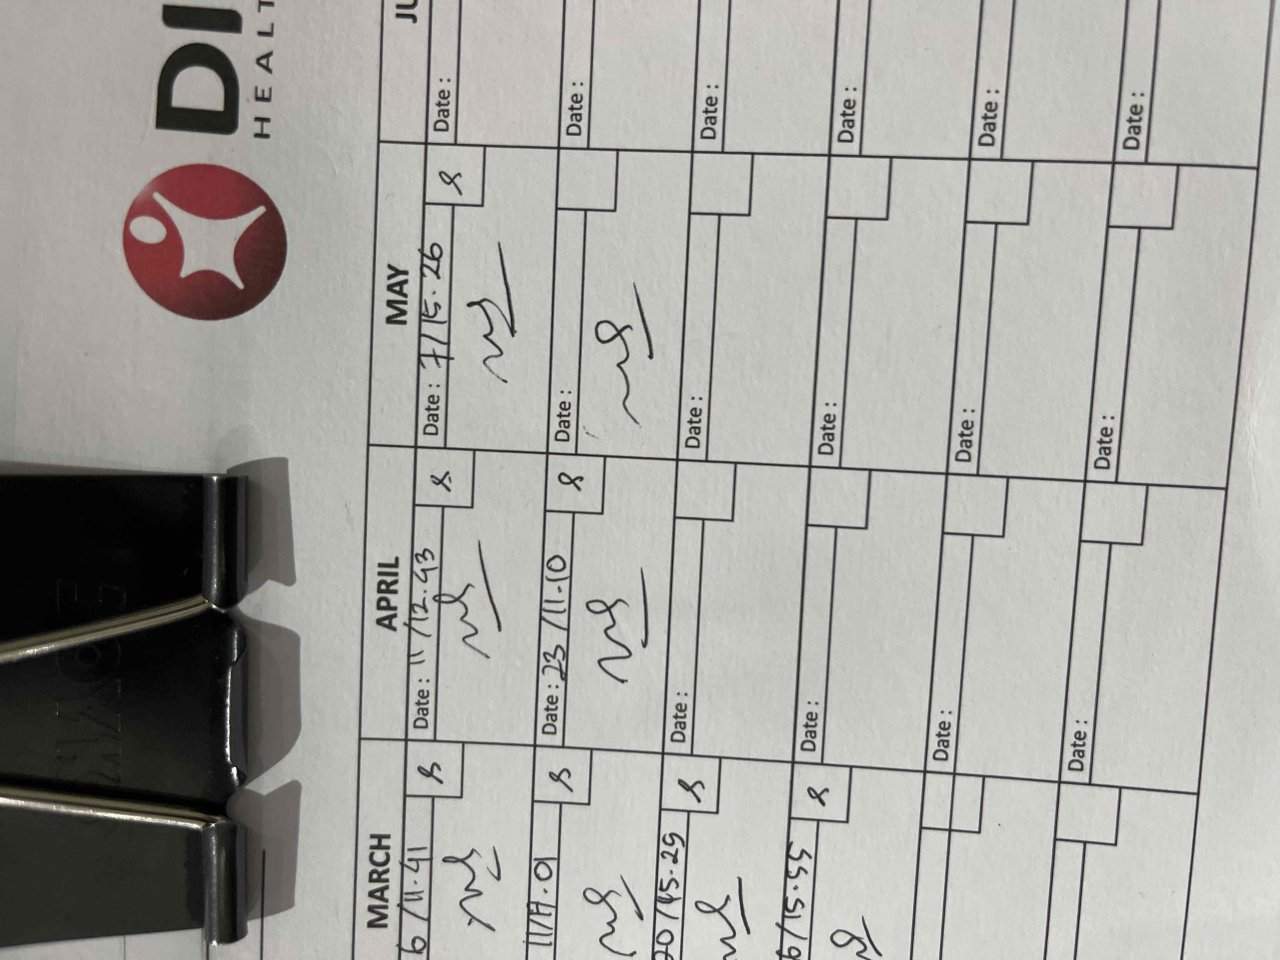 DI
HEALT
MARCH
APRIL
MAY
JU
6/11.41 S
Date: 11/12.43 S
Date: 7/15.26 S
Date:
11/17.01 S
Date: 23/11.10 S
Date:
Date:
20/15.29 S
Date:
Date:
Date:
6/15.55 S
Date:
Date:
Date:
Date:
Date:
Date:
Date:
Date:
Date: